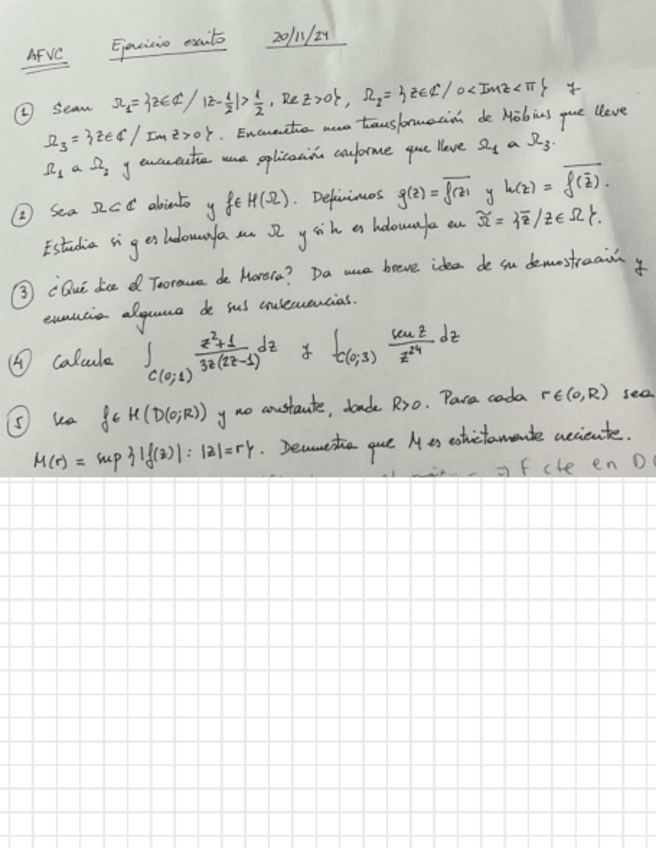 AFVC Ejercicio escrito 20/11/24
① Sean Ω₁={z∈ℂ / |z-1/2|>1/2, Re z>0}, Ω₂={z∈ℂ / 0<Im z<π} y
Ω₃={z∈ℂ / Im z>0}. Encuentra una transformación de Möbius que lleve
Ω₁ a Ω₂ y encuentra una aplicación conforme que lleve Ω₁ a Ω₃.
② Sea Ω⊂ℂ abierto y f∈H(Ω). Definimos g(z)=\overline{f(z)} y h(z)=\overline{f(\bar{z})}.
Estudia si g es holomorfa en Ω y si h es holomorfa en Ω̃={z̄/z∈Ω}.
③ ¿Qué dice el Teorema de Morera? Da una breve idea de su demostración y
enuncia alguna de sus consecuencias.
④ Calcula ∫_{C(0;1)} (z²+1)/(3z(2z-1)) dz y ∫_{C(0;3)} sen z/z²⁴ dz
⑤ Sea f∈H(D(0;R)) y no constante, donde R>0. Para cada r∈(0,R) sea
M(r)=sup{|f(z)|: |z|=r}. Demuestra que M es estrictamente creciente.
f cte en D(